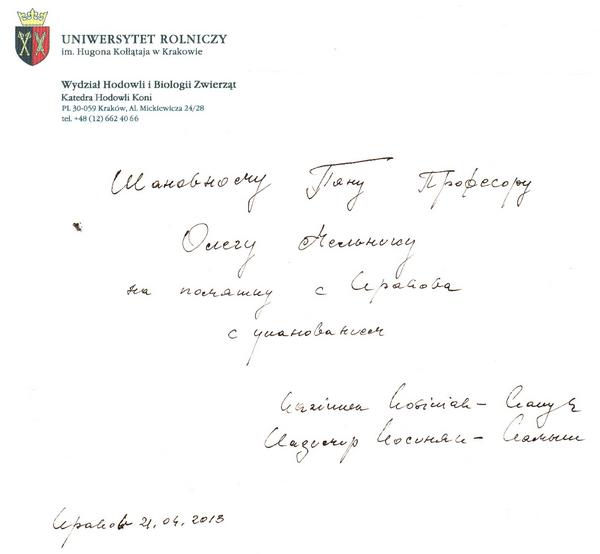 UNIWERSYTET ROLNICZY
im. Hugona Kołłątaja w Krakowie
Wydział Hodowli i Biologii Zwierząt
Katedra Hodowli Koni
Pl. 30-059 Kraków, Al. Mickiewicza 24/28
tel. +48 (12) 662 40 66
Шановному Пану Професору
Олегу Мельнику
на помятку с Кракова
с упанованием
Казимеж Kosiniak-
Косиняк-Камыш
Краков 21.04.2013